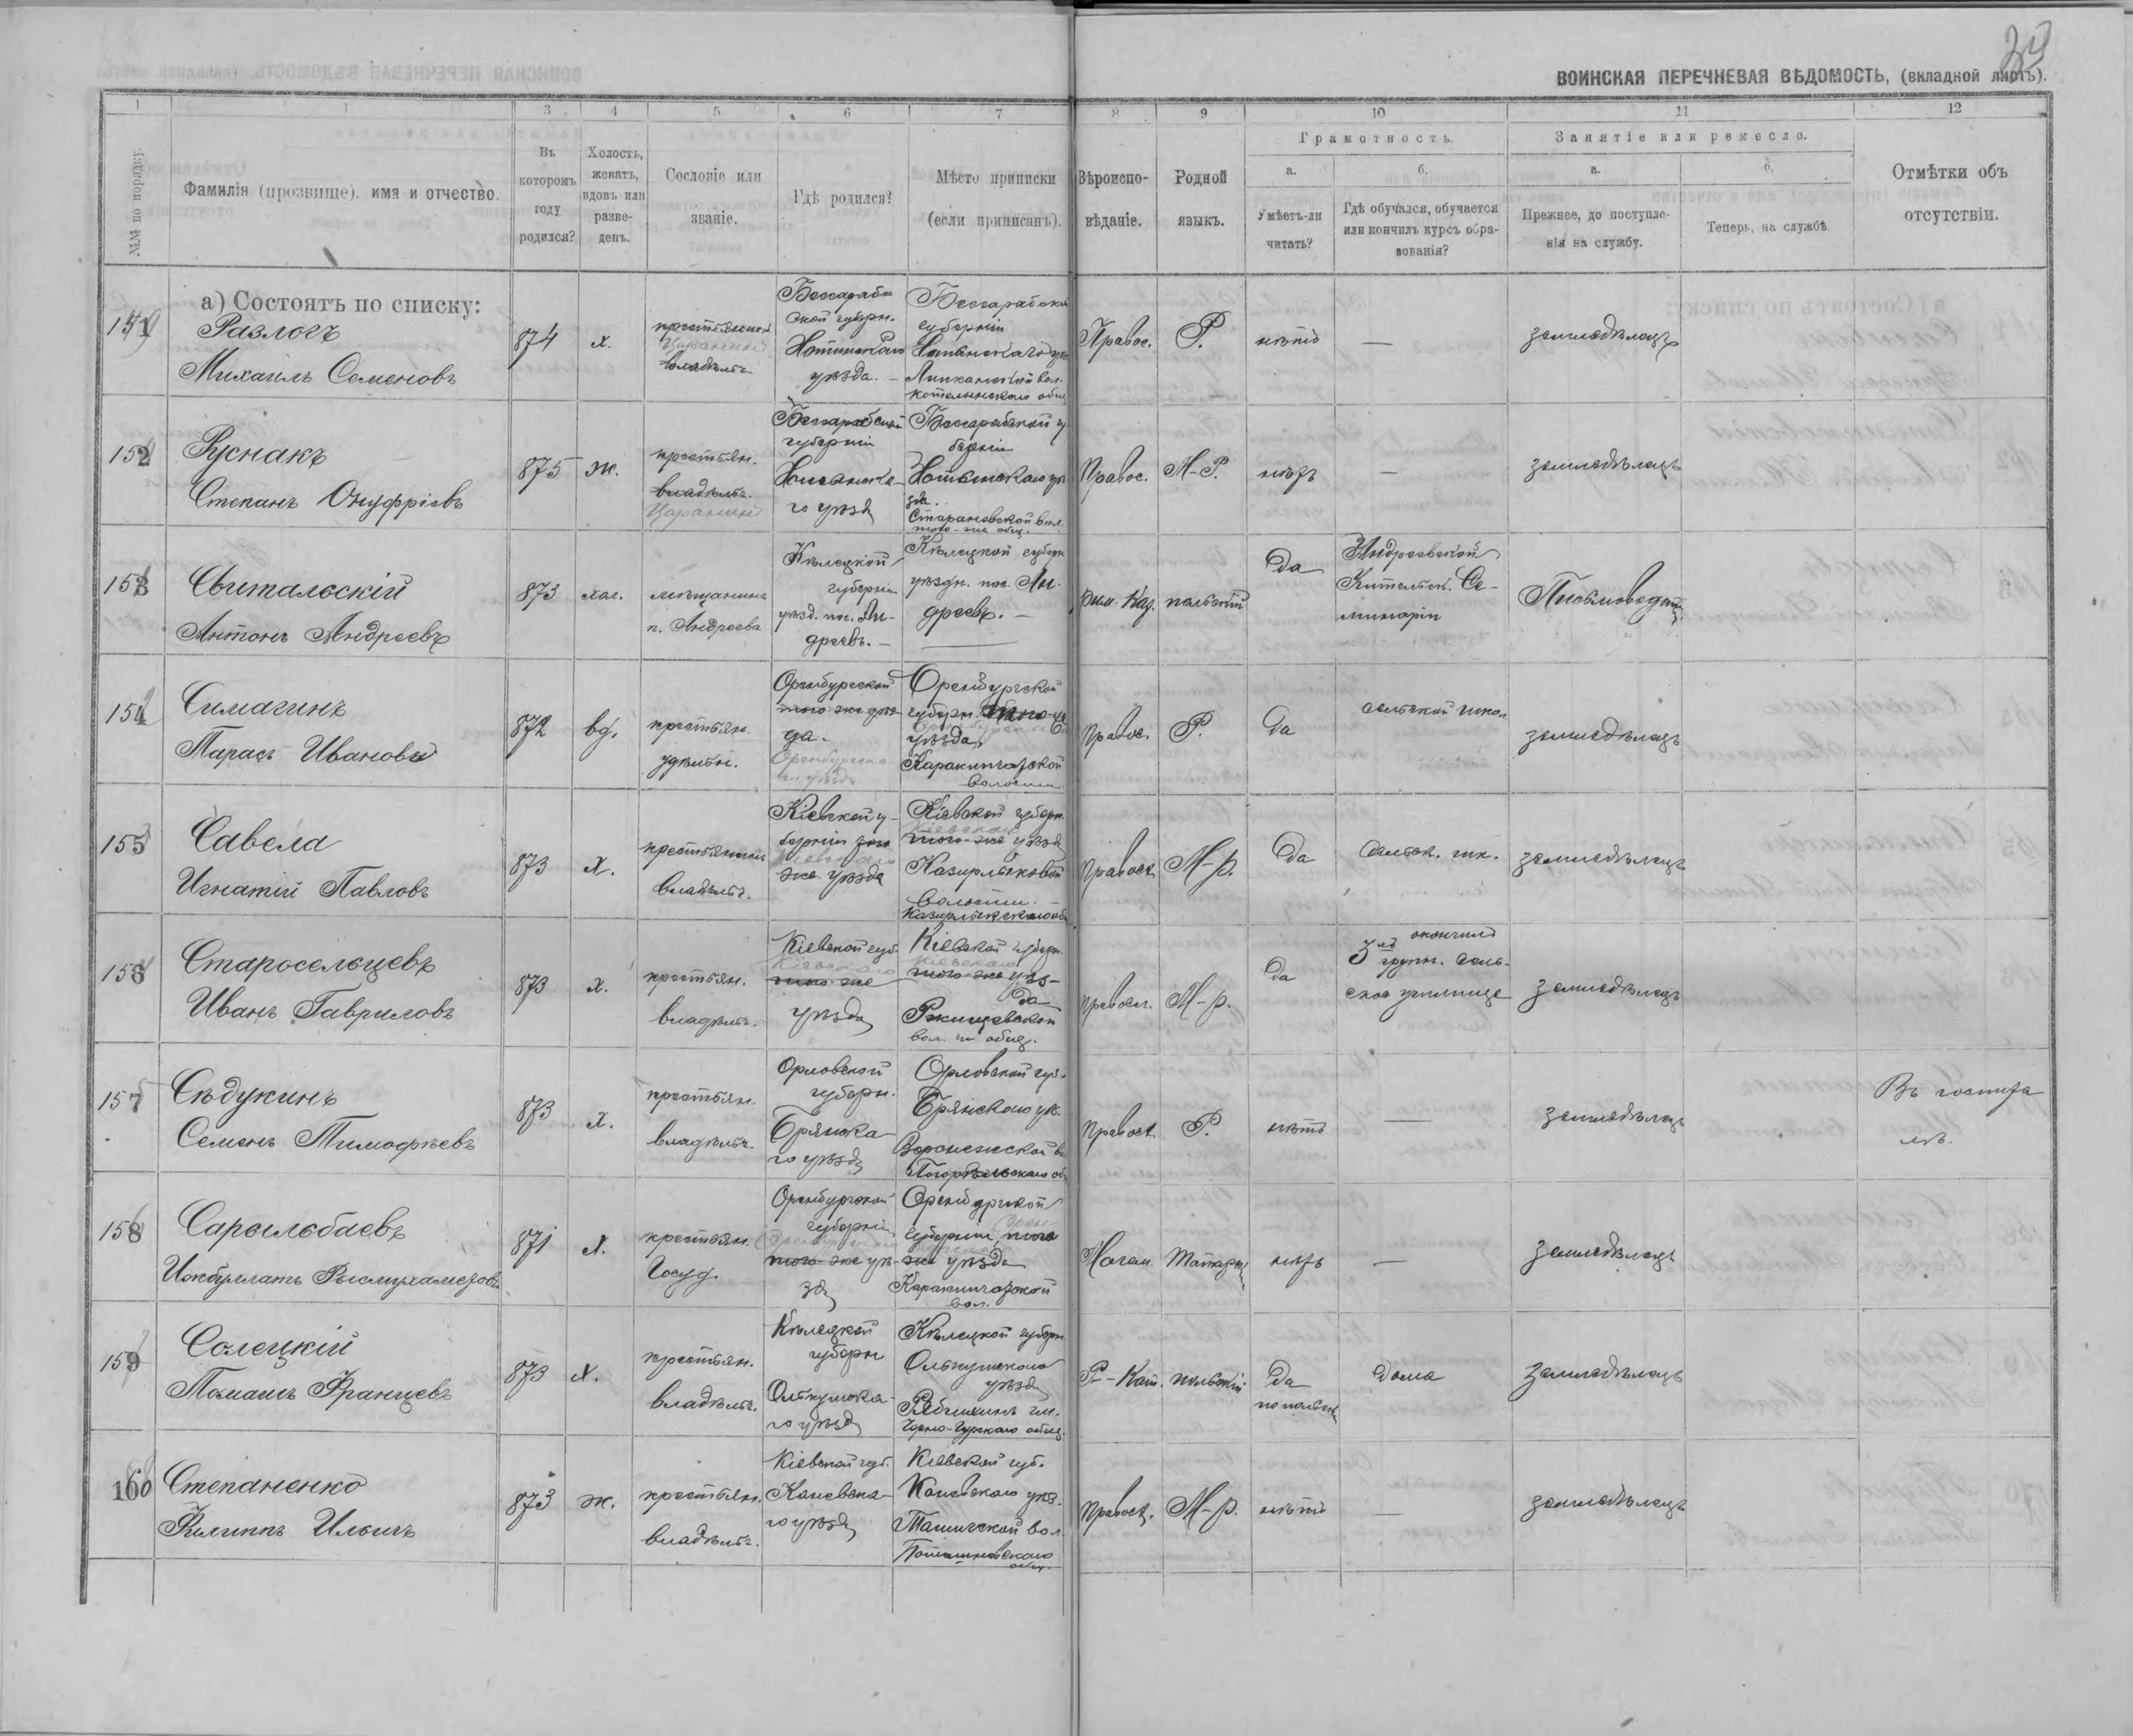 39
ВОИНСКАЯ ПЕРЕЧНЕВАЯ ВѢДОМОСТЬ, (вкладной листъ).
1 1 3 4 5 6 7 8 9 10 11 12
№№ по порядку.
Фамилія (прозвище). имя и отчество.
Въ которомъ году родился?
Холостъ, женатъ, вдовъ или разведенъ.
Сословіе или званіе.
Гдѣ родился?
Мѣсто приписки (если приписанъ).
Вѣроисповѣданіе.
Родной языкъ.
Грамотность.
а.
Умѣетъ-ли читать?
б.
Гдѣ обучался, обучается или кончилъ курсъ образованія?
Занятіе или ремесло.
а.
Прежнее, до поступленія на службу.
б.
Теперь, на службѣ.
Отмѣтки объ отсутствіи.
а) Состоятъ по списку:
151
Разлогъ
Михаилъ Семеновъ
874
х.
Царанинъ
владѣльч.
Бессарабской губерн.
Хотинскаго
уѣзда.
Бессарабской
губерніи
Хотинскаго уѣз
Липканской вол.
Правос.
Р.
нѣтъ
—
земледѣлецъ
152
Руснакъ
Степанъ Онуфріевъ
875
ж.
крестьян.
владѣльч.
Царанинъ
Бессарабской
губерніи
Хотинскаго уѣзд
Бессарабской губерніи
Хотинскаго уѣзда.
Правос.
М-Р.
нѣтъ
—
земледѣлецъ
153
Свитальскій
Антонъ Андреевъ
873
хол.
мѣщанинъ
п. Андреева
Кѣлецкой
губерніи
уѣзд. пос. Андреевъ. —
Кѣлецкой губерн
уѣздн. пос. Андреевъ. —
Рим. Кат.
польскій
Да
Андреевской
Учительск. Семинаріи
154
Симагинъ
Тарасъ Ивановъ
872
вд.
крестьян.
удѣльн.
Оренбургской
того-же уѣзда.
Оренбургской
губерн. того
уѣзда
волости
Правос.
Р.
Да
сельской школ.
земледѣлецъ
155
Савела
Игнатій Павловъ
873
х.
крестьянинъ
владѣльч.
Кіевской губерніи того
же уѣзда
Кіевской губерн.
того-же уѣзд
волости. —
Правосл.
М-р.
Да
Сельск. шк.
земледѣлецъ
156
Старосельцевъ
Иванъ Гавриловъ
873
х.
крестьян.
владѣльч.
Кіевской губ.
Кіевскаго
того-же
уѣзда
Кіевской губерн.
Кіевскаго
того-же уѣзда
Ржищевской
вол. и общ.
Правосл.
М-р.
Да
окончилъ
3 групп. сельское училище
земледѣлецъ
157
Сѣдукинъ
Семенъ Тимофѣевъ
873
х.
крестьян.
владѣльч.
Орловской
губерн.
Брянскаго уѣзд
Орловской губ.
Брянскаго уѣ.
Правосл.
Р.
нѣтъ
—
земледѣлецъ
Въ госпиталѣ.
158
Сарыльбаевъ
871
х.
крестьян.
Госуд.
Оренбургской
губерніи
того-же уѣзд
Оренбургской
губерніи, того
же уѣзда
вол.
Магом.
нѣтъ
—
земледѣлецъ
159
Солецкій
Томашъ Францевъ
873
х.
крестьян.
владѣльч.
Кѣлецкой
губерн
Олькушскаго уѣзд
Кѣлецкой губерн.
Олькушскаго
уѣзд
Р-Кат.
польскій
Да
по польски
дома
земледѣлецъ
160
Степаненко
Филиппъ Ильичъ
873
ж.
крестьян.
владѣльч.
Кіевской губ.
Каневскаго уѣзд
Кіевской губ.
Каневскаго уѣз.
общ.
Правосл.
М-р.
нѣтъ
—
земледѣлецъ